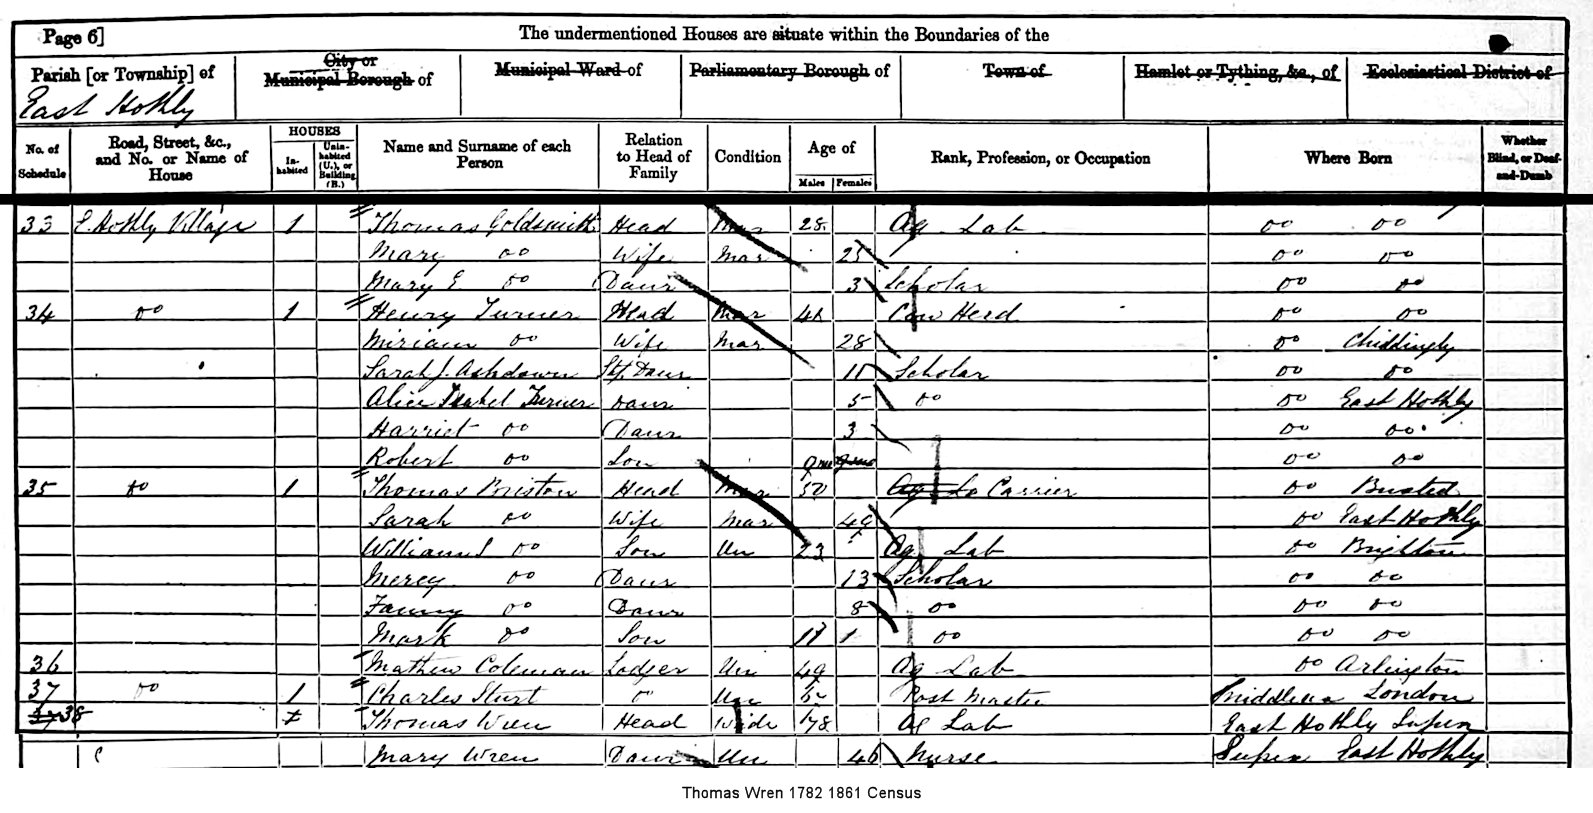 Page 6] The undermentioned Houses are situate within the Boundaries of the
Parish [or Township] of City or Municipal Borough of Municipal Ward of Parliamentary Borough of Town of Hamlet or Tything, &c., of Ecclesiastical District of
East Hothly
No. of Schedule Road, Street, &c., and No. or Name of House HOUSES In-habited Unin-habited (U.), or Building (B.) Name and Surname of each Person Relation to Head of Family Condition Age of Males Females Rank, Profession, or Occupation Where Born Whether Blind, or Deaf-and-Dumb
33 E. Hothly Village 1 Thomas Goldsmith Head Mar 28 Ag Lab do do
Mary do Wife Mar 25 do do
Mary E do Daur 3 Scholar do do
34 do 1 Henry Turner Head Mar 41 Cow Herd do do
Miriam do Wife Mar 28 do Chiddingly
Sarah J. Ashdown Daur 11 Scholar do do
Alice Isabel Turner Daur 5 do do East Hothly
Harriet do Daur 3 do do
Robert do Son 9 mo do do
35 do 1 Thomas Head Mar 50 Ag La Carrier do Buxted
Sarah do Wife Mar 49 do East Hothly
William do Son Un 23 Ag Lab do Brighton
Mercy do Daur 13 Scholar do do
Fanny do Daur 8 do do do
Mark do Son 11 do do do
36 Mathew Coleman Lodger Un 49 Ag Lab do Arlington
37 do 1 Charles Sturt do Un Post Master Middlesex London
38 Thomas Wren Head Wide 78 Ag Lab East Hothly Sussex
Mary Wren Daur Un 46 Nurse Sussex East Hothly
Thomas Wren 1782 1861 Census